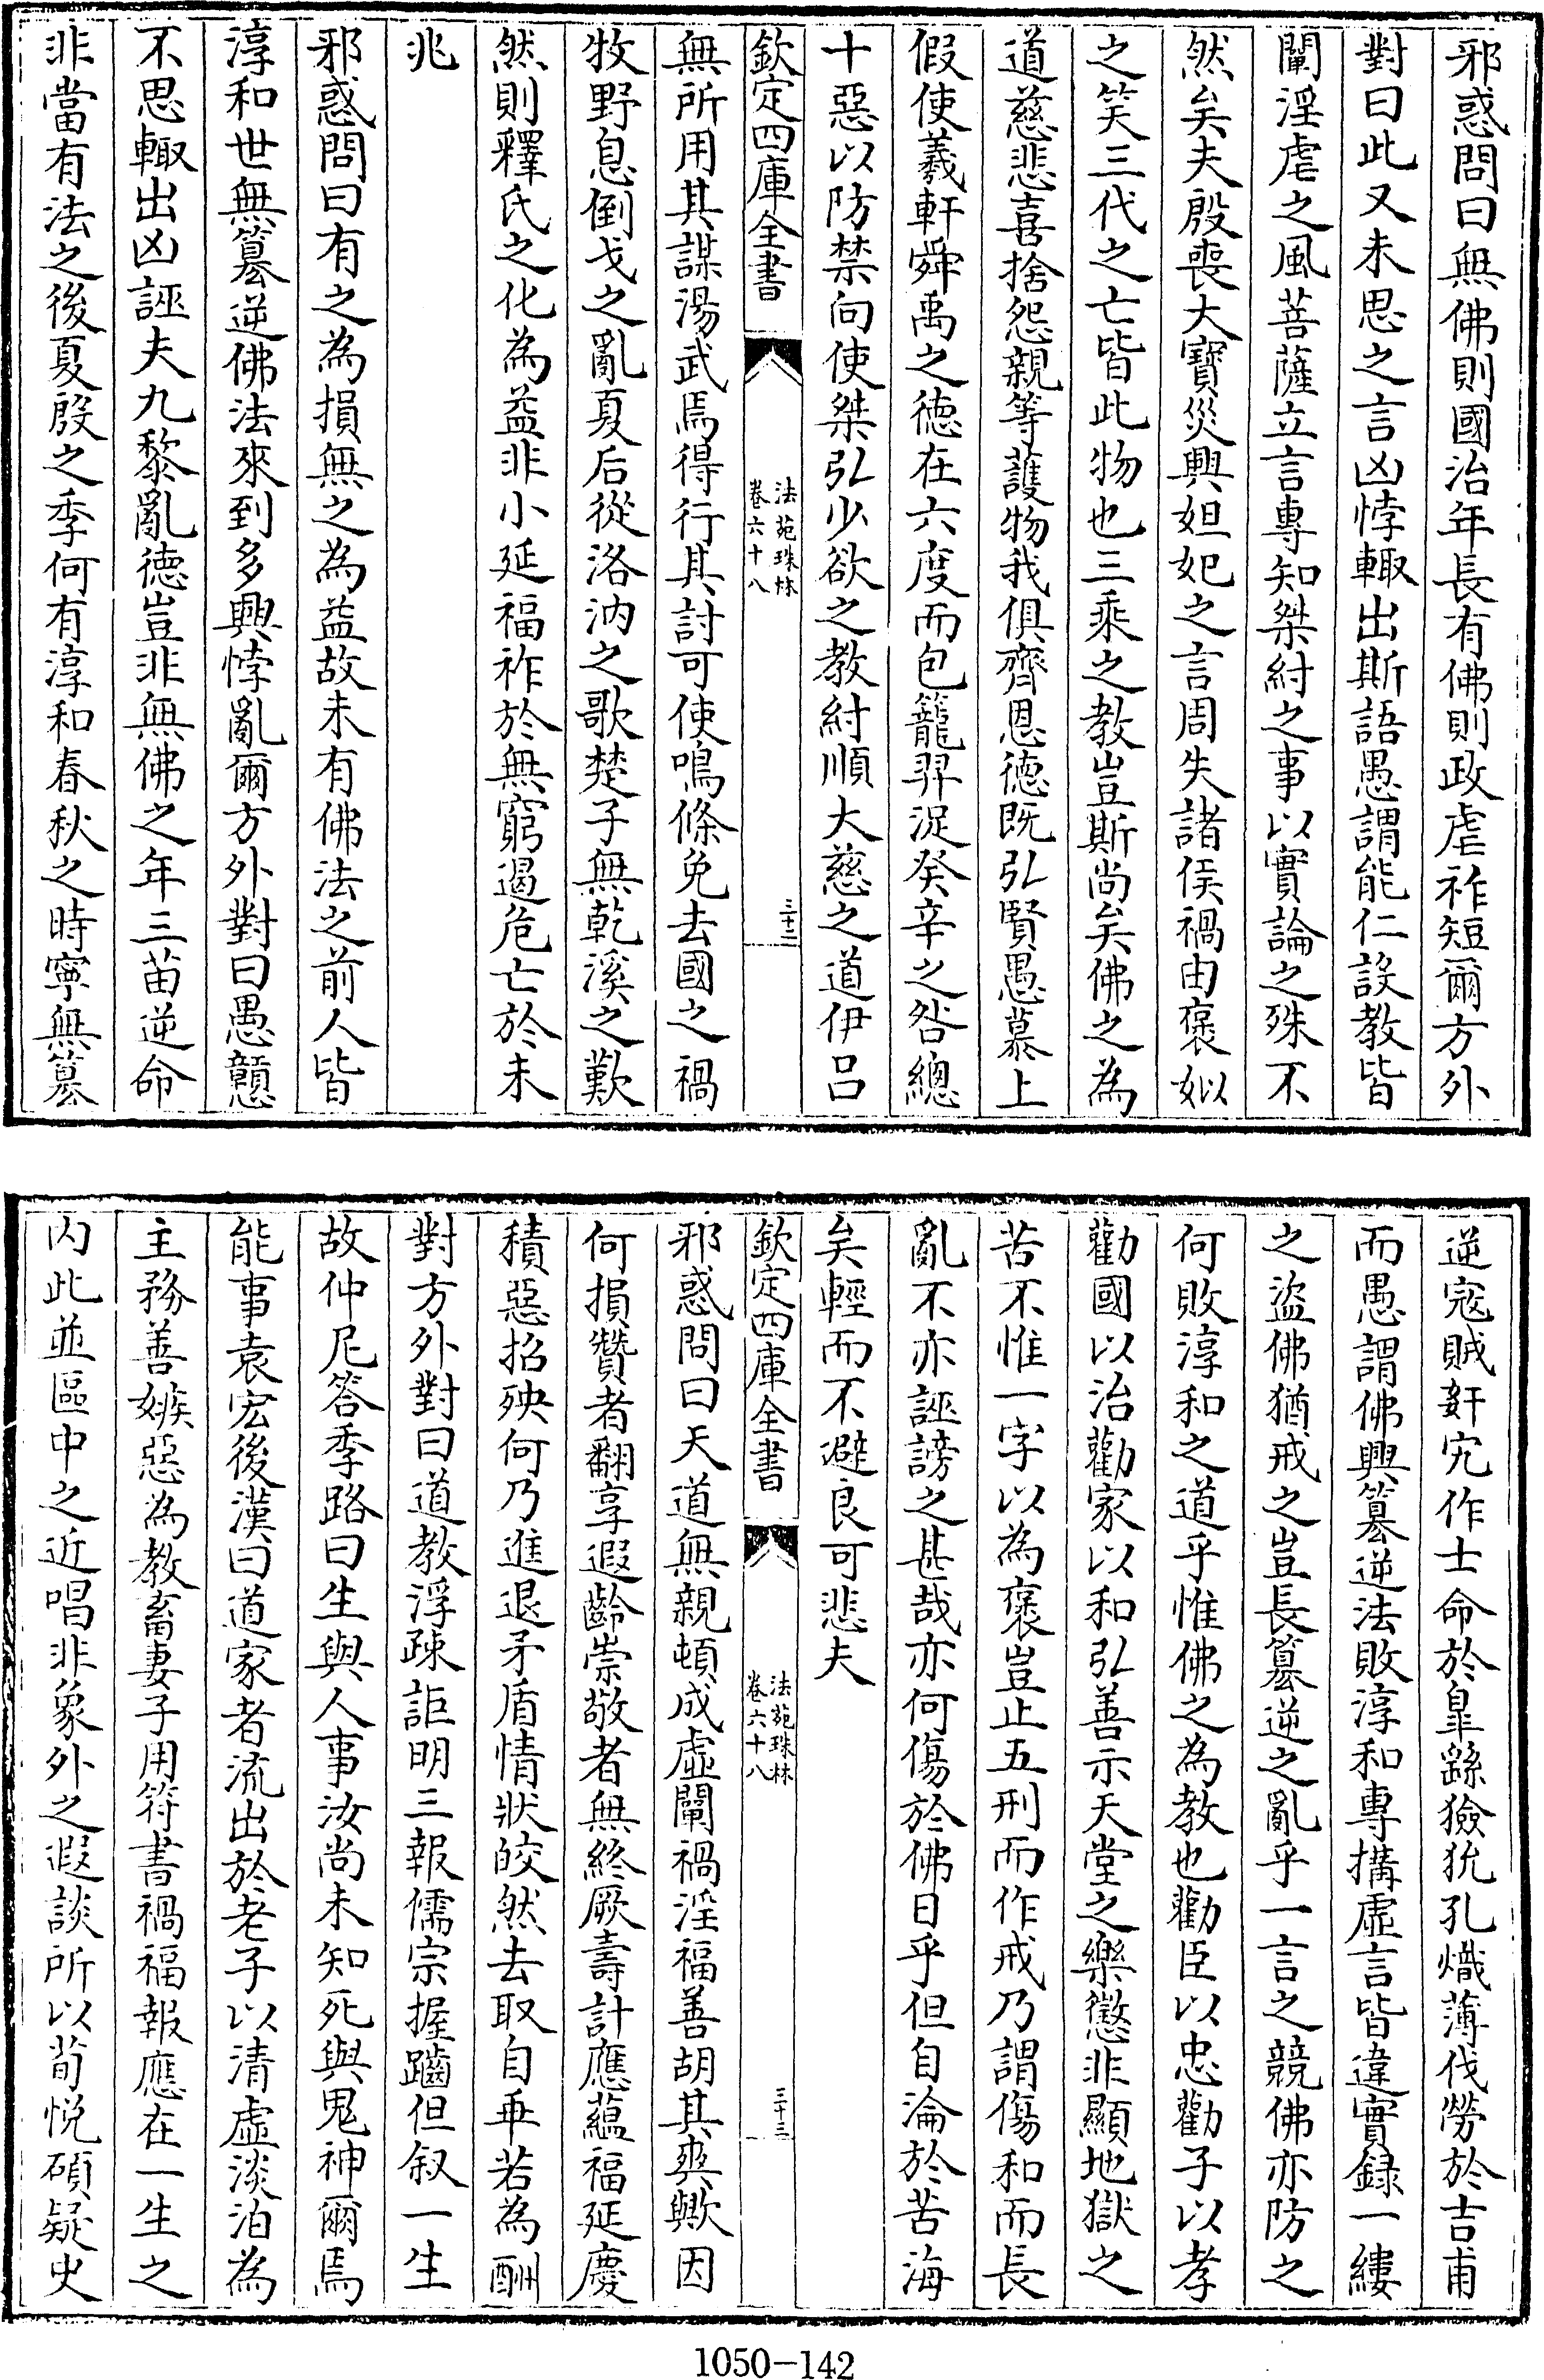 邪惑問曰無佛則國治年長有佛則政虐祚短爾方外
對曰此又未思之言凶悖輙出斯語愚謂能仁設教皆
闡淫虐之風菩薩立言專知桀紂之事以實論之殊不
然矣夫殷喪大寳災興妲妃之言周失諸侯禍由褒姒
之笑三代之亡皆此物也三乘之教豈斯尚矣佛之為
道慈悲喜捨怨親等護物我俱齊恩徳既弘賢愚慕上
假使羲軒舜禹之徳在六度而包籠羿浞癸辛之咎總
十惡以防禁向使桀弘少欲之教紂順大慈之道伊吕
欽定四庫全書
法苑珠林
卷六十八
三十二
無所用其謀湯武焉得行其討可使鳴條免去國之禍
牧野息倒戈之亂夏后從洛汭之歌楚子無乾溪之歎
然則釋氏之化為益非小延福祚於無窮遏危亡於未
兆
邪惑問曰有之為損無之為益故未有佛法之前人皆
淳和世無簒逆佛法來到多興悖亂爾方外對曰愚戇
不思輙出凶誣夫九黎亂徳豈非無佛之年三苗逆命
非當有法之後夏殷之季何有淳和春秋之時寧無簒
逆寇賊奸宄作士命於臯繇獫狁孔熾薄伐勞於吉甫
而愚謂佛興簒逆法敗淳和專搆虚言皆違實録一縷
之盜佛猶戒之豈長簒逆之亂乎一言之競佛亦防之
何敗淳和之道乎惟佛之為教也勸臣以忠勸子以孝
勸國以治勸家以和弘善示天堂之樂懲非顯地獄之
苦不惟一字以為褒豈止五刑而作戒乃謂傷和而長
亂不亦誣謗之甚哉亦何傷於佛日乎但自淪於苦海
矣輕而不避良可悲夫
欽定四庫全書
法苑珠林
卷六十八
三十三
邪惑問曰天道無親頓成虚闡禍淫福善胡其爽歟因
何損贊者翻享遐齡崇敬者無終厥壽計應藴福延慶
積惡招殃何乃進退矛盾情狀皎然去取自乖若為酬
對方外對曰道教浮疎詎明三報儒宗握齱但叙一生
故仲尼答季路曰生與人事汝尚未知死與鬼神爾焉
能事袁宏後漢曰道家者流出於老子以清虚淡泊為
主務善嫉惡為教畜妻子用符書禍福報應在一生之
内此並區中之近唱非象外之遐談所以荀悦碩疑史
1050-142